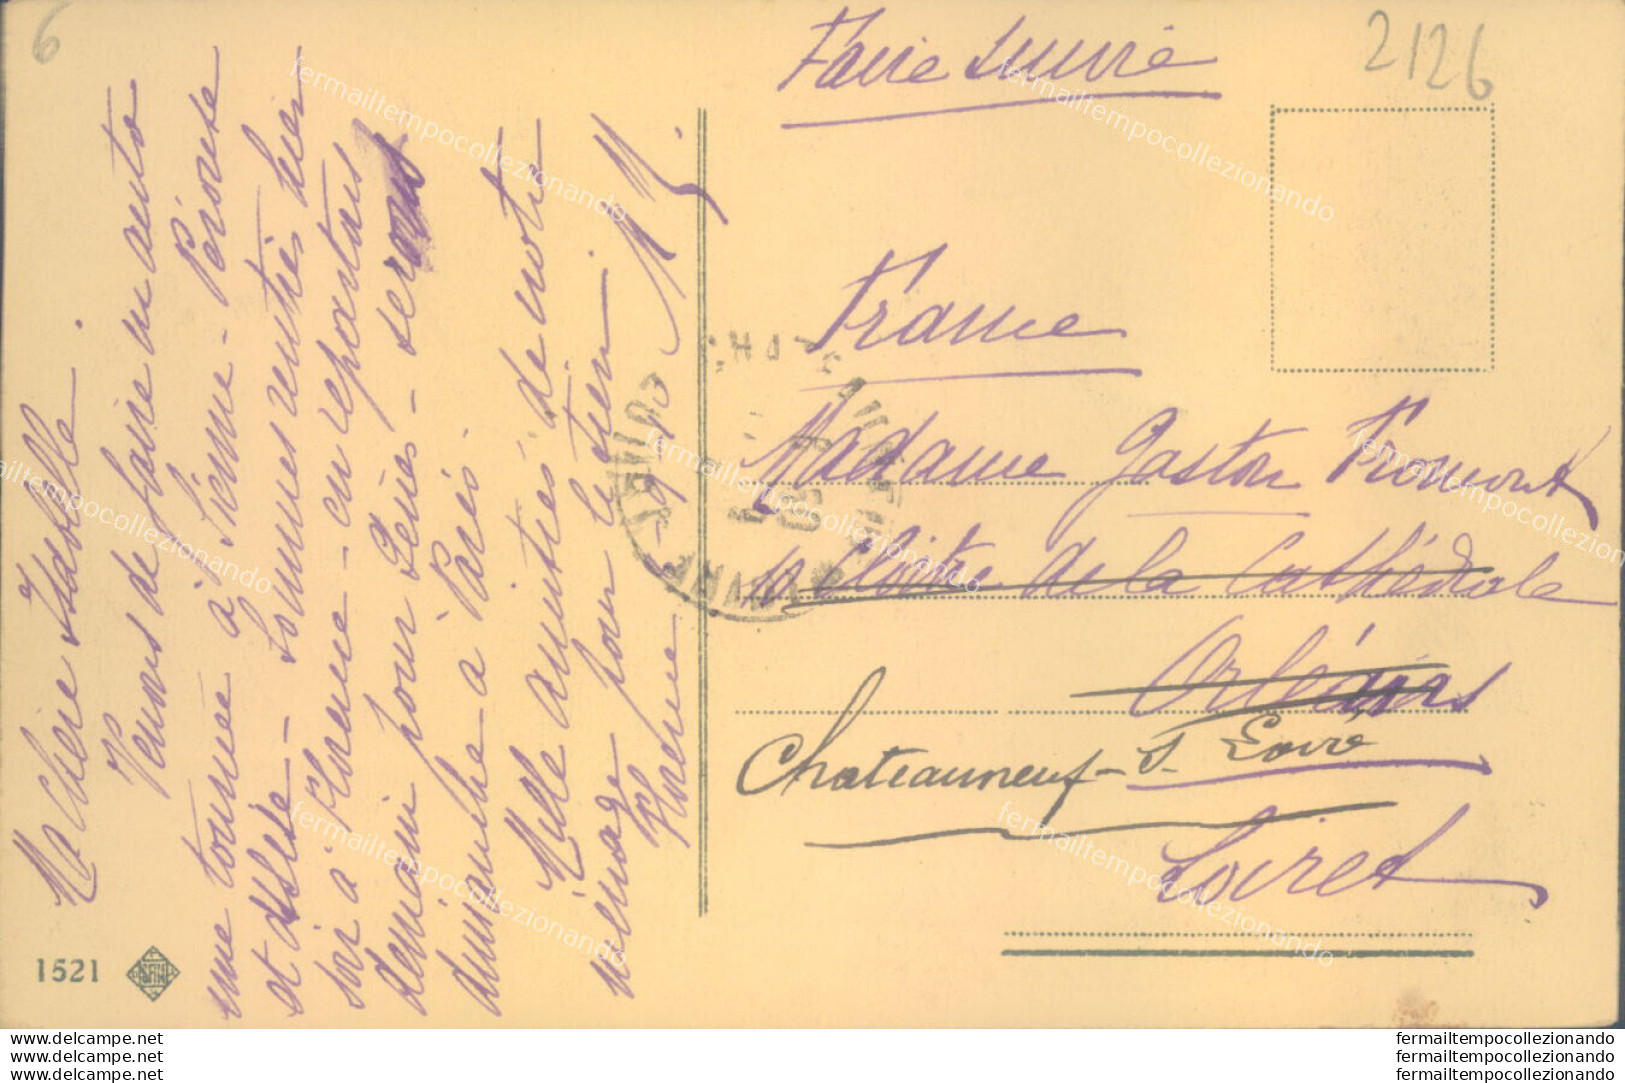 6
2126
Faire suivre
Ma chère Isabelle.
Venons de faire en auto
une tournée à Sienne - Pérouse
et Assise - Sommes rentrés hier
soir à Florence - en repartons
demain pour Gênes - serons
dimanche à Paris.
Mille amitiés de notre
ménage pour le tien
Florence
France
Madame Gaston Fromont
10 Cloître de la Cathédrale
Orléans
Chateauneuf - s. Loire
Loiret
1521
fermailtempocollezionando
delcampe.net fermailtempocollezionando
delcampe.net fermailtempocollezionando
delcampe.net fermailtempocollezionando